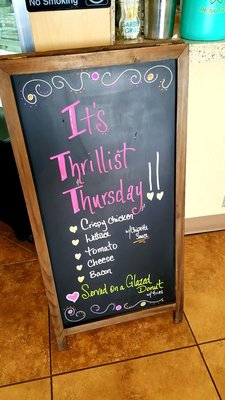 No Smoking
GARBO
GRILL
It's
Thrillist
Thursday!!
Crispy Chicken
Lettuce
w/Chipotle
Sauce
Tomato
Cheese
Bacon
Served on a Glazed
Donut
w/Fries